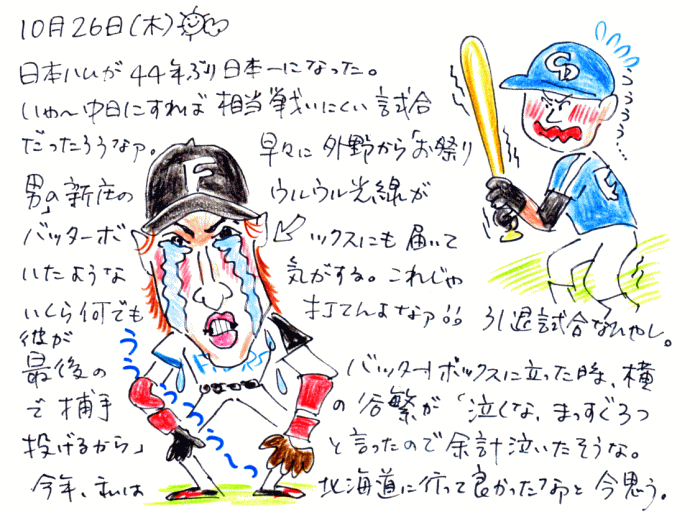 10月26日(木)
日本ハムが44年ぶり日本一になった。
いや〜中日にすれば相当戦いにくい試合
だったろうなァ。早々に外野から「お祭り
男」の新庄のウルウル光線が
バッターボックスにも届いて
いたような気がする。これじゃ
いくら何でも打てんよなァ!!引退試合なんやし。
彼が
最後のバッターボックスに立った時、横
で捕手の谷繁が「泣くな、まっすぐ3つ
投げるから」と言ったので余計泣いたそうな。
今年、私は北海道に行って良かったなァと今思う。
F
CD
うぅぅぅ…
うぅぅうぅぅ〜っ